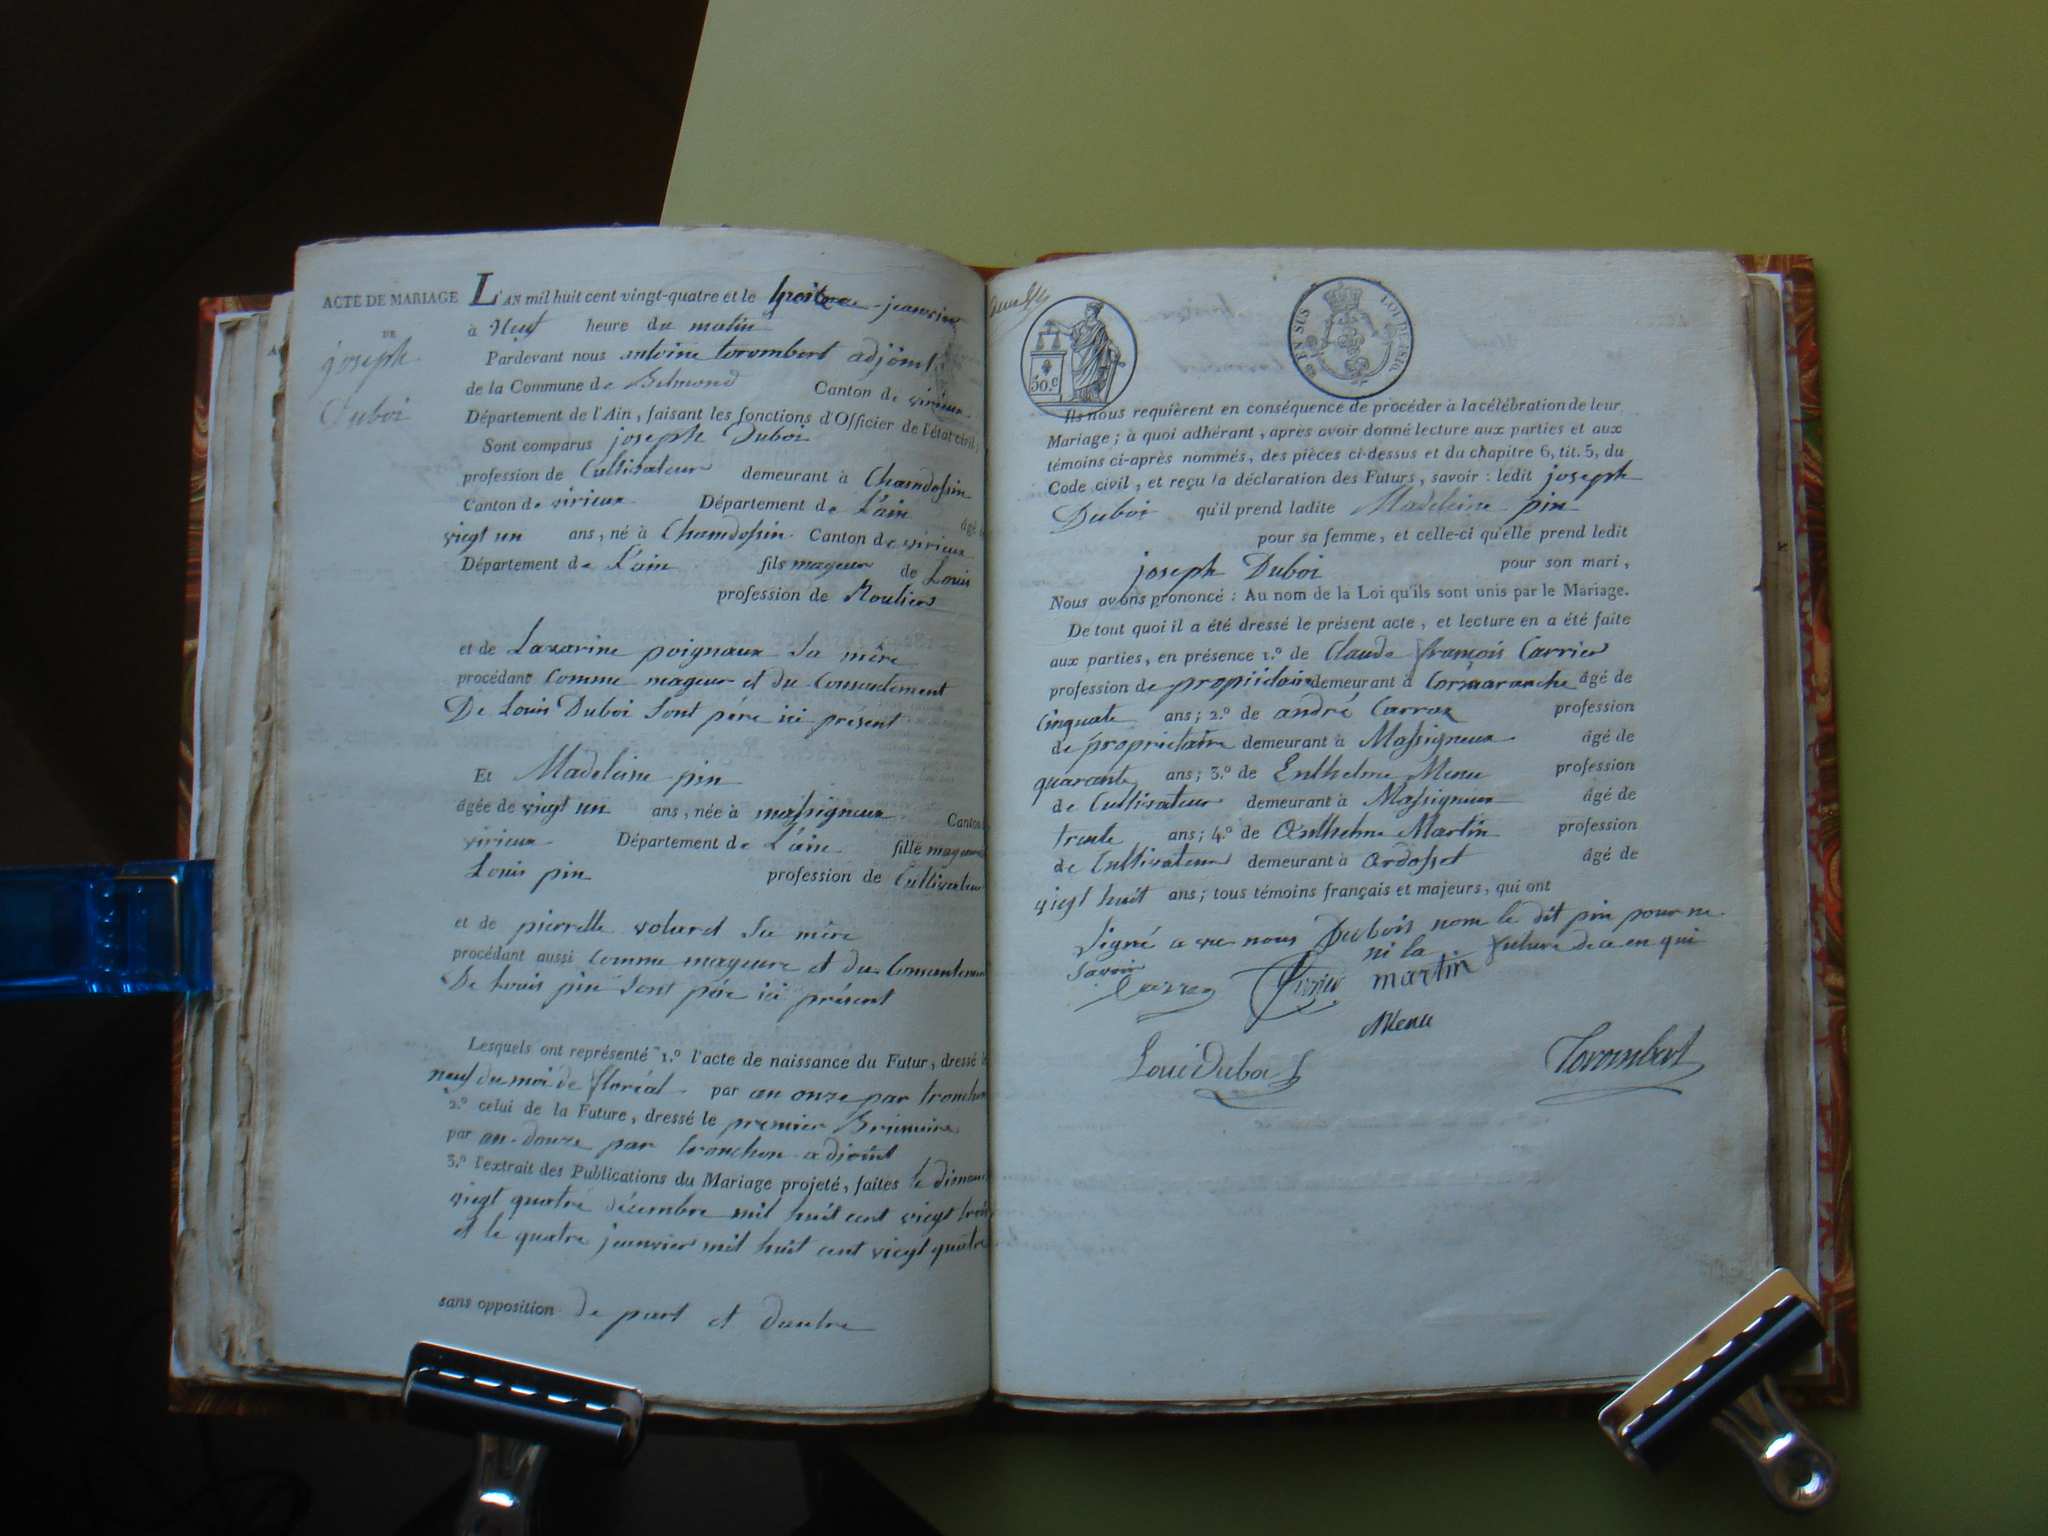 ACTE DE MARIAGE
DE
joseph
Duboi
L'AN mil huit cent vingt-quatre et le janvier
à Neuf heure du matin
Pardevant nous antoine torombert adjoint
de la Commune de Belmond Canton de virieux
Département de l'Ain, faisant les fonctions d'Officier de l'état civil,
Sont comparus joseph Duboi
profession de Cultivateur demeurant à Chamdossin
Canton de virieux Département de L'ain âgé
viegt un ans, né à Chamdossin Canton de virieux
Département de L'ain fils mageur de Louis
profession de Roulier
et de Lazarine poignaux Sa mère
procédant Comme mageur et du Consentement
De Louis Duboi Sont père ici présent
Et Madeleine pin
âgée de viegt un ans, née à massigneux Canton
virieux Département de L'ain fille mageure
Louis pin profession de Cultivateur
et de pierrette volard Sa mère
procédant aussi Comme mageure et du Consentemen
De Louis pin Sont père ici présent
Lesquels ont représenté 1.º l'acte de naissance du Futur, dressé le
neuf du moi de floréal par an onze par tronchon
2.º celui de la Future, dressé le premier Brimaire
par an douze par tronchon adjoint
3.º l'extrait des Publications du Mariage projeté, faites le diman
viegt quatre décembre mil huit cent viegt trois
et le quatre jeanvier mil huit cent viegt quatre
sans opposition de part et dautre
50.c
EN SUS
LOI DE 1816
Ils nous requièrent en conséquence de procéder à la célébration de leur
Mariage; à quoi adhérant, après avoir donné lecture aux parties et aux
témoins ci-après nommés, des pièces ci-dessus et du chapitre 6, tit. 5, du
Code civil, et reçu la déclaration des Futurs, savoir: ledit joseph
Duboi qu'il prend ladite Madeleine pin
pour sa femme, et celle-ci qu'elle prend ledit
joseph Duboi pour son mari,
Nous avons prononcé: Au nom de la Loi qu'ils sont unis par le Mariage.
De tout quoi il a été dressé le présent acte, et lecture en a été faite
aux parties, en présence 1.º de Claude françois Carrier
profession de propriétaire demeurant à Cormaranche âgé de
Cinquate ans; 2.º de andré Carraz profession
de propriétaire demeurant à Massigneux âgé de
quarante ans; 3.º de Enthelme Menu profession
de Cultivateur demeurant à Massigneux âgé de
trente ans; 4.º de Anthelme Martin profession
de Cultivateur demeurant à ardosset âgé de
viegt huit ans; tous témoins français et majeurs, qui ont
Signé a vec nous Dubois nom le dit pin pour ne
Savoir ni la future de ce en qui
Carraz martin
Menu
Loui Duboi Torombert